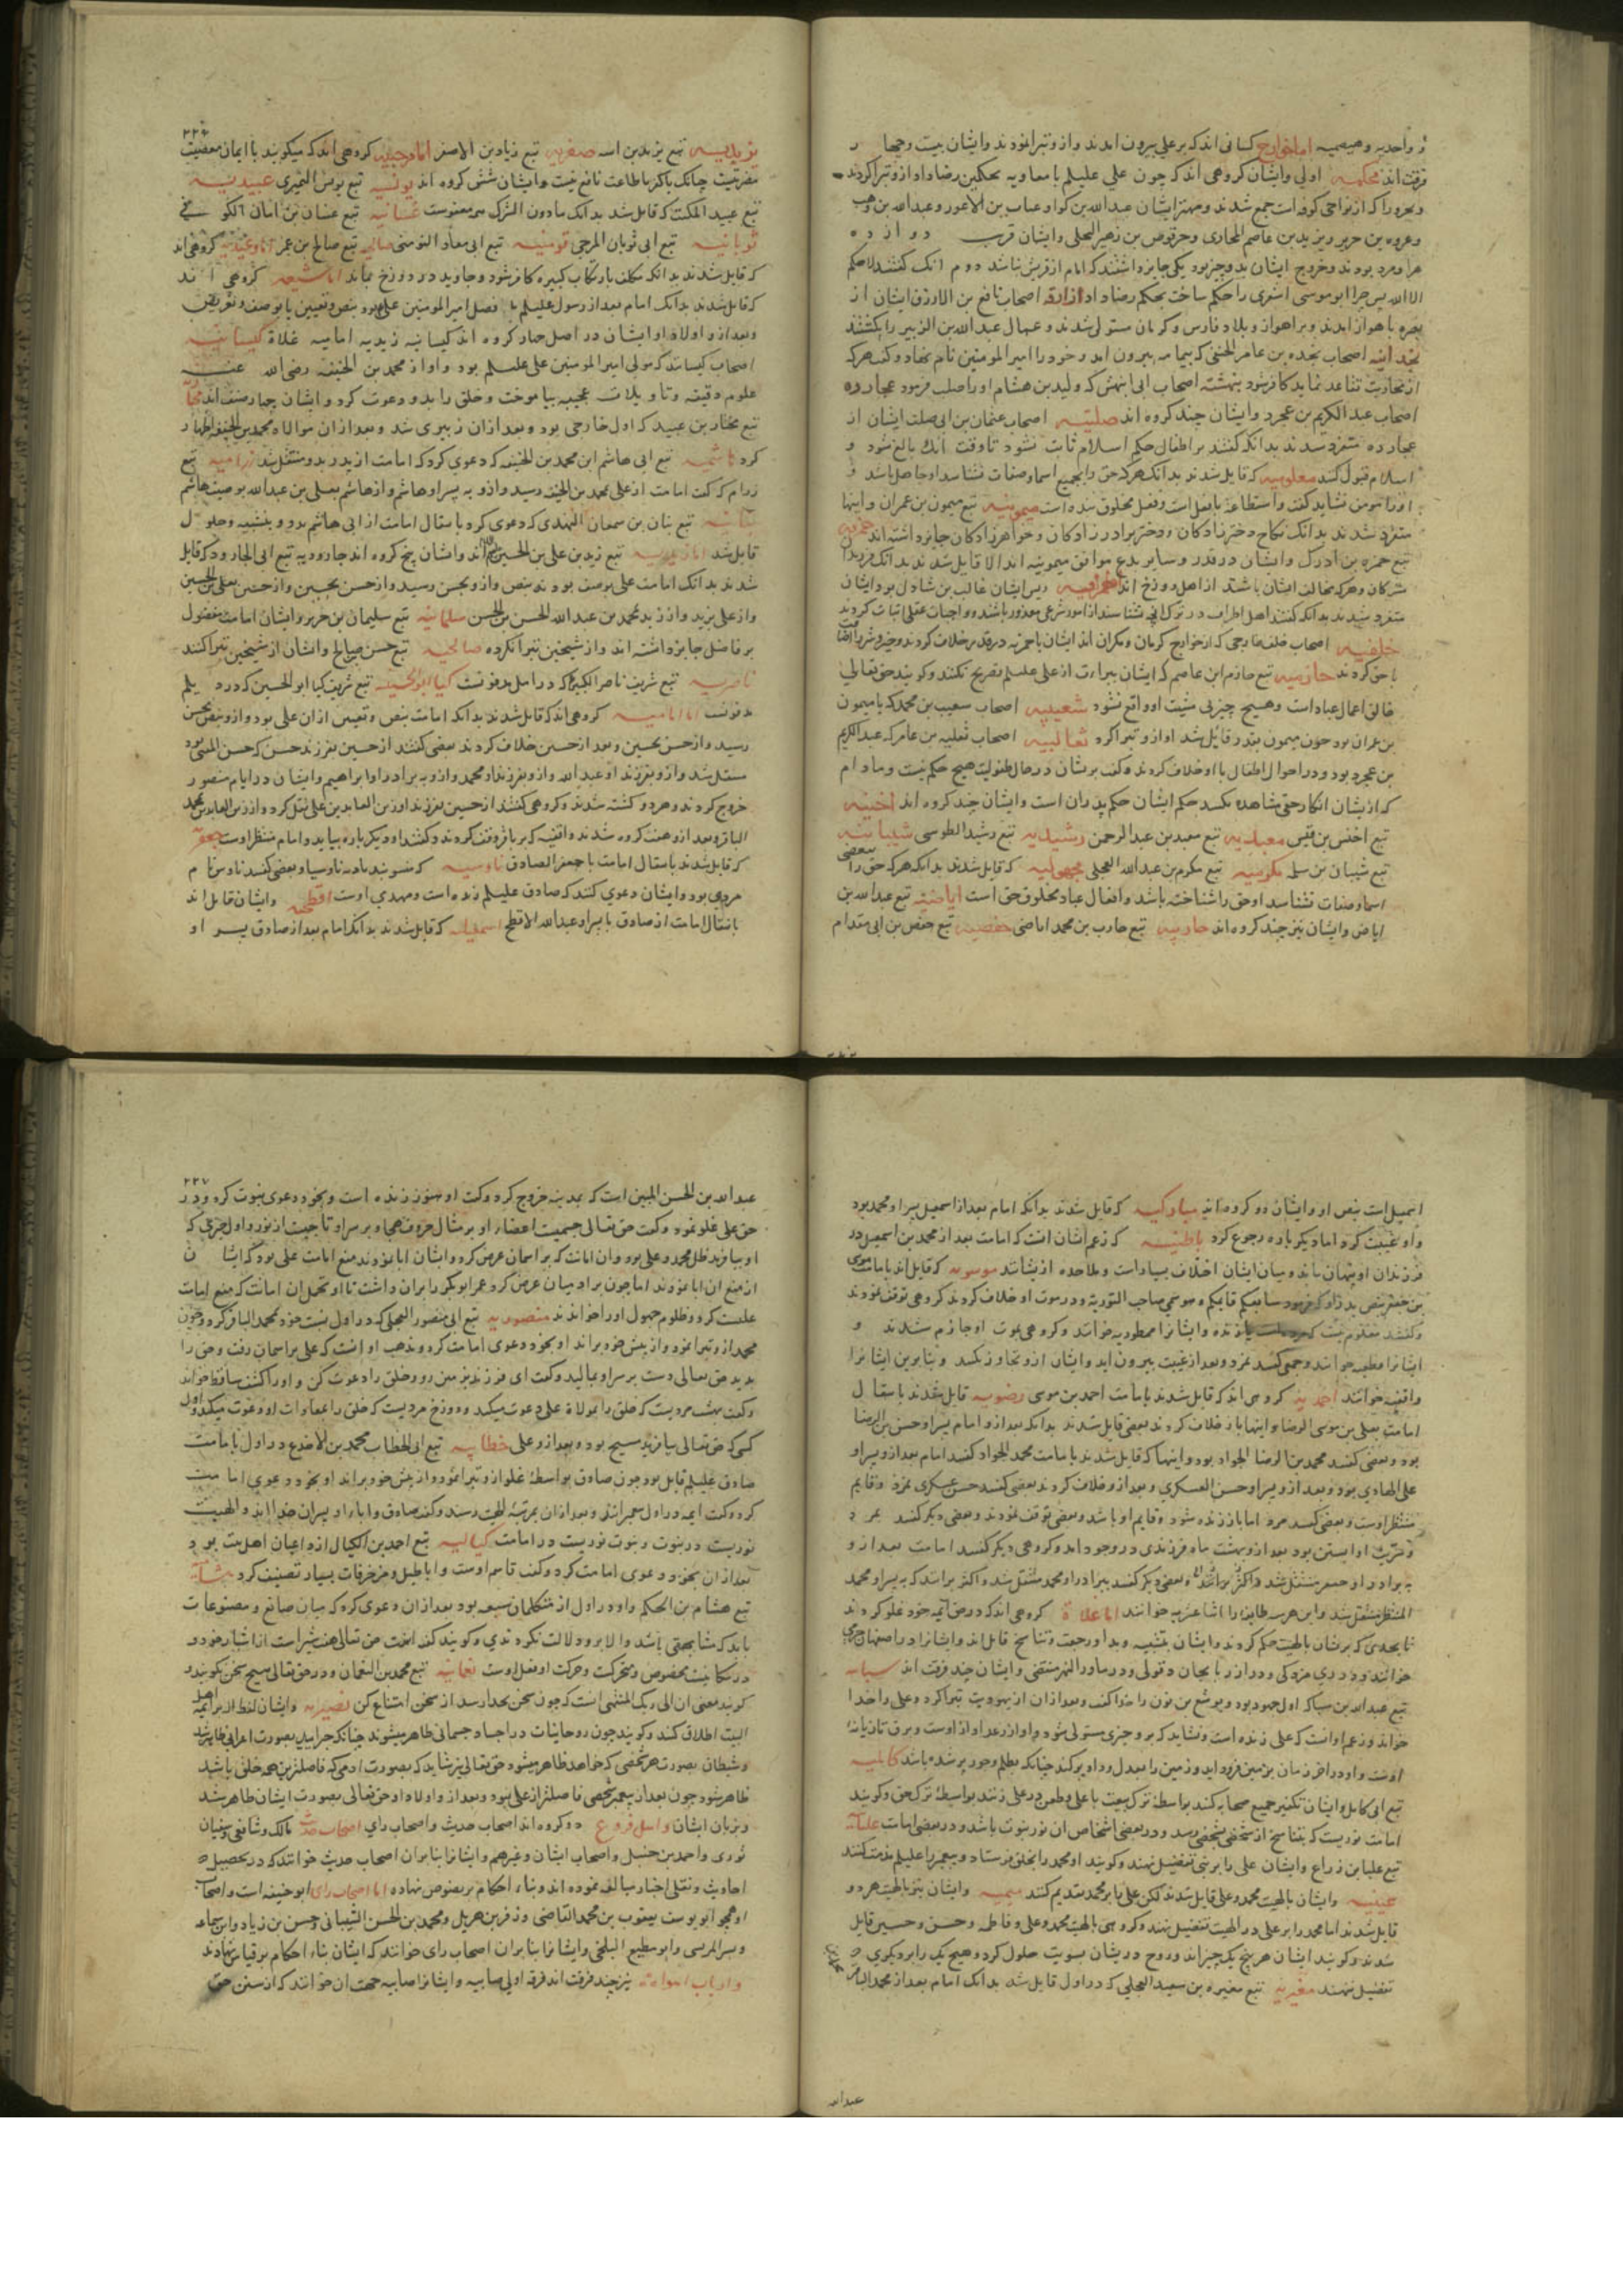 و واحدیه وهیصمیه اما خوارج کسانی اند که بر علی بیرون امدند وازو تبرا نمودند وایشان بیست وپنج
فرقت اند محکمیه اولی وایشان کروهی اند که چون علی علیلم با معاویه بحکمین رضا داد ازو تبرا کردند
وبحرورا که از نواحی کوفه است جمع شدند ومهتر ایشان عبدالله بن کوا وعتاب بن الاعور وعبدالله بن وهب
وعروه بن حریر ویزید بن عاصم المحاربی وحرقوص بن زهیر البجلی وایشان قرب دوازده
هزار مرد بودند وخروج ایشان بدو چیز بود یکی جایز داشتند که امام از قریش نباشد دوم انک کفتند لا حکم
الا الله پس چرا ابو موسی اشعری را حکم ساخت بحکم رضا داد ازارقه اصحاب نافع بن الازرق ایشان از
بصره باهواز امدند وبر اهواز وبلاد فارس وکرمان مستولی شدند وعمال عبدالله بن الزبیر را بکشتند
نجداتیه اصحاب نجده بن عامر الحنفی که بیمامه بیرون امد وخود را امیر المومنین نام نهاد وکفت هرکه
از محاربت تقاعد نماید کافر شود بیهشیه اصحاب ابی بیهش که ولید بن هشام او را صلب فرمود عجارده
اصحاب عبد الکریم بن عجرد وایشان چند کروه اند صلتیه اصحاب عثمان بن ابی صلت ایشان از
عجارده متفرد شدند بدانکه کفتند بر اطفال حکم اسلام ثابت نشود تا وقت انک بالغ شود و
اسلام قبول کند معلومیه که قایل شدند بدانک هرکه حق را بجمیع اسما وصفات نشناسد او جاهل باشد و
او را مومن نشاید کفت واستطاعة با فعل است وفعل مخلوق بنده است میمونیه تبع میمون بن عمران واینها
متفرد شدند بدانک نکاح دختر زادکان ودختر برادر زادکان وخواهر زادکان جایز داشته اند حمزیه
تبع حمزه بن ادرک وایشان در قدر وسایر بدع موافق میمونیه اند الا قایل شدند بدانک فرزندان
مشرکان وهرکه مخالف ایشان باشند از اهل دوزخ اند اطرافیه رییس ایشان غالب بن شادل بود وایشان
متفرد شدند بدانکه کفتند اهل اطراف در ترک انچه نشناسند از امور شرعی معذور باشند وواجبات عقلی اثبات کردند
خلفیه اصحاب خلف خارجی که از خوارج کرمان ومکران اند ایشان با حمزیه در قدر خلاف کردند وخیر وشر را اضافت
با حق کردند حازمیه تبع حازم ابن عاصم که ایشان ببراءت از علی علیلم تصریح نکنند وکویند حق تعالی
خالق اعمال عباد است وهیچ چیز بی مشیت او واقع نشود شعیبیه اصحاب شعیب بن محمد که با میمون
بن عمران بود چون میمون بقدر قایل شد او ازو تبرا کرد ثعالبیه اصحاب ثعلبه بن عامر که عبد الکریم
بن عجرد بود ودر احوال اطفال با او خلاف کردند وکفت بریشان در حال طفولیت هیچ حکم نیست ومادام
که از یشان انکار حق مشاهده نکند حکم ایشان حکم پدران است وایشان چند کروه اند اخنسیه
تبع اخنس بن قیس معبدیه تبع معبد بن عبد الرحمن رشیدیه تبع رشید الطوسی شیبانیه
تبع شیبان بن سلمه مکرمیه تبع مکرم بن عبدالله العجلی مجهولیه که قایل شدند بدانکه هرکه حق را ببعضی
اسما وصفات شناسد او حق را شناخته باشد وافعال عباد مخلوق حق است اباضیه تبع عبدالله بن
اباض وایشان نیز چند کروه اند حارثیه تبع حارث بن محمد اباضی حفصیه تبع حفص بن ابی مقدام
یزیدیه تبع یزید بن انیسه صفریه تبع زیاد بن الاصفر اما مرجییه کروهی اند که میکویند با ایمان معصیت
مضر نیست چنانک با کفر طاعت نافع نیست وایشان شش کروه اند یونسیه تبع یونس النمیری عبیدیه
تبع عبید المکتب که قایل شد بدانک مادون الشرک معفوست غسانیه تبع غسان بن ابان الکوفی
ثوبانیه تبع ابی ثوبان المرجی تومنیه تبع ابی معاذ التومنی صالحیه تبع صالح بن عمر اما وعیدیه کروهی اند
که قایل شدند بدانکه مکلف بارتکاب کبیره کافر شود وجاوید در دوزخ بماند اما شیعه کروهی اند
که قایل شدند بدانک امام بعد از رسول علیلم امیر المومنین علی بود بنص وتعیین یا بوصف وتعریض
وبعد ازو اولاد او وایشان در اصل چهار کروه اند کیسانیه زیدیه امامیه غلاة کیسانیه
اصحاب کیسانند که مولی امیر المومنین علی علیلم بود واو از محمد بن الحنفیه رضی الله عنه
علوم دقیقه وتاویلات عجیبه بیاموخت وخلق را بدو دعوت کرد وایشان چهار صنف اند
تبع مختار بن عبید که اول خارجی بود وبعد ازان زبیری شد وبعد ازان موالاه محمد بن الحنفیه اظهار
کرد هاشمیه تبع ابی هاشم ابن محمد بن الحنفیه که دعوی کرد که امامت از پدر بدو منتقل شد رزامیه تبع
رزام که کفت امامت از علی بمحمد بن الحنفیه رسید وازو به پسر او هاشم واز هاشم بعلی بن عبدالله بوصیت هاشم
بنانیه تبع بنان بن سمعان النهدی که دعوی کرد بانتقال امامت از ابی هاشم بدو وبتشبیه وحلول
قایل شد اما زیدیه تبع زید بن علی بن الحسین اند وایشان پنج کروه اند جارودیه تبع ابی الجارود که قایل
شدند بدانک امامت علی بوصف بود نه بنص وازو بحسن رسید واز حسن بحسین واز حسین بعلی بن الحسین
واز علی بزید واز زید بمحمد بن عبدالله الحسن بن الحسن سلیمانیه تبع سلیمان بن جریر وایشان امامت مفضول
بر فاضل جایز داشته اند واز شیخین تبرا نکرده صالحیه تبع حسن بن صالح وایشان از شیخین تبرا کنند
ناصریه تبع شریف ناصر الکبیر که در امل مدفونست کیا ابو الحسینیه تبع شریف کیا ابو الحسین که در دیلم
مدفونست اما امامیه کروهی اند که قایل شدند بدانکه امامت بنص وتعیین ازان علی بود وازو بنص بحسن
رسید واز حسن بحسین وبعد از حسین خلاف کردند بعضی کفتند از حسین بفرزند حسن که حسن المثنی بود
منتقل شد وازو بفرزند او عبدالله وازو بفرزند او محمد وازو به برادر او ابراهیم وایشان در ایام منصور
خروج کردند وهر دو کشته شدند وکروهی کفتند از حسین بفرزند او زین العابدین علی نقل کرد واز زین العابدین بمحمد
الباقر وبعد ازو هفت کروه شدند واقفیه که بر باقر وقف کردند وکفتند او دیکر باره بیاید وامام منتظر اوست جعفریه
که قایل شدند بانتقال امامت با جعفر الصادق ناوسیه که منسوبند بناوسیا وبعضی کفتند ناوس نام
مردی بود وایشان دعوی کنند که صادق علیلم زنده است ومهدی اوست افطحیه وایشان قایل اند
بانتقال امامت از صادق با پسر او عبدالله الافطح اسمعیلیه که قایل شدند بدانک امام بعد از صادق پسر او
اسمعیل است بنص او وایشان دو کروه اند مبارکیه که قایل شدند بدانکه امام بعد از اسمعیل پسر او محمد بود
واو غیبت کرد اما دیکر باره رجوع کرد باطنیه که زعم ایشان انست که امامت بعد از محمد بن اسمعیل در
فرزندان او پنهان بماند ومیان ایشان اختلاف بسیار است وملاحده از یشانند موسویه که قایل اند بامامت موسی
بن جعفر بنص پدر سابعکم قایمکم وموسی صاحب التوریة ودر موت او خلاف کردند کروهی توقف نمودند
وکفتند معلوم نیست که مرده است یا زنده وایشانرا ممطوریه خوانند وکروهی بموت او جازم شدند و
ایشانرا قطعیه خوانند وجمعی کفتند نمرد وبعد از غیبت بیرون اید وایشان ازو تجاوز نکنند وبنابرین ایشانرا
واقفیه خوانند احمدیه کروهی اند که قایل شدند بامامت احمد بن موسی رضویه قایل شدند بانتقال
امامت بعلی بن موسی الرضا واینها باز خلاف کردند بعضی قایل شدند بدانکه بعد ازو امام پسر او حسن بن الرضا
بود وبعضی کفتند محمد بن الرضا الجواد بود واینها که قایل شدند بامامت محمد الجواد کفتند امام بعد ازو پسر او
علی الهادی بود وبعد ازو پسر او حسن العسکری وبعد ازو خلاف کردند بعضی کفتند حسن عسکری نمرد وقایم
منتظر اوست وبعضی کفتند مرد اما باز زنده شود وقایم او باشد وبعضی توقف نمودند وبعضی دیکر کفتند بمرد
وسریت او ابستن بود بعد ازو بهشت ماه فرزندی در وجود امد وکروهی دیکر کفتند امامت بعد ازو
به برادر او جعفر منتقل شد وبعضی دیکر کفتند ببرادر او محمد منتقل شد واکثر برانند که به پسر او محمد
المنتظر منتقل شد واین هرسه طایفه را اثنا عشریه خوانند اما غلاة کروهی اند که در حق ایمه خود غلو کردند
تا بحدی که بریشان بالهیت حکم کردند وایشان بتشبیه وبدا ورجعت وتناسخ قایل اند وایشانرا در اصفهان خرمی
خوانند ودر ری مزدکی ودر اذربایجان دقولی ودر ماوراالنهر مقنعی وایشان چند فرقت اند سبائیه
تبع عبدالله بن سبا که اول جهود بود ویوشع بن نون را خدا کفت وبعد ازان از یهودیت تبرا کرد وعلی را خدا
خواند وزعم او انست که علی زنده است ونشاید که برو چیزی مستولی شود واواز رعد اواز اوست وبرق تازیانه
اوست واو در اخر زمان بزمین فرود اید وزمین را بعدل وداد پر کند چنانکه بظلم وجور پر شده باشد کاملیه
تبع ابی کامل وایشان تکفیر جمیع صحابه کنند بواسطۀ ترک بیعت با علی وطعن در علی زنند بواسطۀ ترک حق وکویند
امامت نوریست که بتناسخ از شخصی بشخصی رسد ودر بعضی اشخاص ان نور نبوت باشد ودر بعضی امامت علبائیه
تبع علبا بن ذراع وایشان علی را بر نبی تفضیل نهند وکویند او محمد را بخلق فرستاد وپیغمبر را علیلم مذمت کنند
عینیه وایشان بالهیت محمد وعلی قایل شدند لکن علی را بر محمد تقدیم کنند میمیه وایشان نیز بالهیت هر دو
قایل شدند اما محمد را بر علی در الهیت تفضیل نهند وکروهی بالهیت محمد وعلی وفاطمه وحسن وحسین قایل
شدند وکویند ایشان هر پنج یک چیز اند وروح دریشان بسویت حلول کرد وهیچ یک را بر دیکری
تفضیل ننهند مغیریه تبع مغیره بن سعید العجلی که در اول قایل شد بدانک امام بعد از محمد الباقر
عبدالله
۲۲۷
عبدالله بن الحسن بن الحسن است که بمدینه خروج کرد وکفت او هنوز زنده است وبخود دعوی نبوت کرد ودر
حق علی غلو نمود وکفت حق تعالی جسمیست اعضاء او بر مثال حروف هجا وبر سر او تاجیست از نور واول چیزی که
او بیافرید ظل محمد وعلی بود وان امانت که بر اسمان عرض کرد وایشان ابا نمودند منع امامت علی بود که ایشان
از منع ان ابا نمودند اما چون بر ادمیان عرض کرد عمر ابوبکر را بران داشت تا او تحمل ان امانت که منع امامت
علیست کرد وظلوم جهول او را خواندند منصوریه تبع ابی منصور العجلی که در اول نسبت خود بمحمد الباقر کرد وچون
محمد ازو تبرا نمود واز پیش خود براند او بخود دعوی امامت کرد ومذهب او انست که علی بر اسمان رفت وحق را
بدید حق تعالی دست بر سر او مالید وکفت ای فرزند بزمین رو وخلق را دعوت کن واو را کسف ساقط خواند
وکفت بهشت مردیست که خلق را بموالاة علی دعوت میکند ودوزخ مردیست که خلق را بمعادات او دعوت میکند واول
کسی که حق تعالی بیافرید مسیح بود وبعد ازو علی خطابیه تبع ابی الخطاب محمد بن الاجدع در اول بامامت
صادق علیلم قایل بود چون صادق بواسطۀ غلو ازو تبرا نمود واز پیش خود براند او بخود دعوی امامت
کرد وکفت ایمه در اول پیغمبرانند وبعد ازان بمرتبۀ الهیت رسند وکفت صادق واباء او پسران خدا اند والهیت
نوریست در نبوت ونبوت نوریست در امامت کیالیه تبع احمد بن الکیال از داعیان اهل بیت بود
بعد ازان بخود دعوی امامت کرد وکفت قایم اوست واباطیل ومزخرفات بسیار تصنیف کرد هشامیه
تبع هشام بن الحکم واو در اول از متکلمان شیعه بود بعد ازان دعوی کرد که میان صانع ومصنوعات
باید که مشابهتی باشد والا برو دلالت نکردندی وکویند کفت هفت شبر است از اشبار خود ودر
در مکانیست مخصوص ومتحرکست وحرکت او فعل اوست نعمانیه تبع محمد بن النعمان ودر حق تعالی هیچ سخن نکویند و
کویند معنی ان الی ربک المنتهی انست که چون سخن بخدا رسد از سخن امتناع کن نصیریه وایشان لفظ اله بر ایمه اهل
البیت اطلاق کنند وکویند چون روحانیات در اجساد جسمانی ظاهر میشوند چنانکه جبراییل بصورت اعرابی ظاهر شد
وشیطان بصورت هر شخصی که خواهد ظاهر میشود حق تعالی نیز شاید که بصورت ادمی که فاضلترین همه خلق باشد
ظاهر شود چون بعد از پیغمبر شخصی فاضلتر از علی نبود وبعد ازو اولاد او حق تعالی بصورت ایشان ظاهر شد
وبزبان ایشان واهل فروع دو کروه اند اصحاب حدیث واصحاب رای اصحاب حدیث مالک وشافعی وسفیان
ثوری واحمد بن حنبل واصحاب ایشان وغیرهم وایشانرا بنابران اصحاب حدیث خوانند که در تحصیل
احادیث ونقل اخبار مبالغه نموده اند وبناء احکام بر نصوص نهاده اما اصحاب رای ابو حنیفه است واصحاب
او همچو ابو یوسف یعقوب بن محمد القاضی وزفر بن هزیل ومحمد بن الحسن الشیبانی وحسن بن زیاد وابن سماعه
وبشر المریسی وابو مطیع البلخی وایشانرا بنابران اصحاب رای خوانند که ایشان بناء احکام بر قیاس نهادند
وارباب اهواء نیز چند فرقت اند فرقه اولی صابیه وایشانرا صابیه جهت ان خوانند که از سنن حق